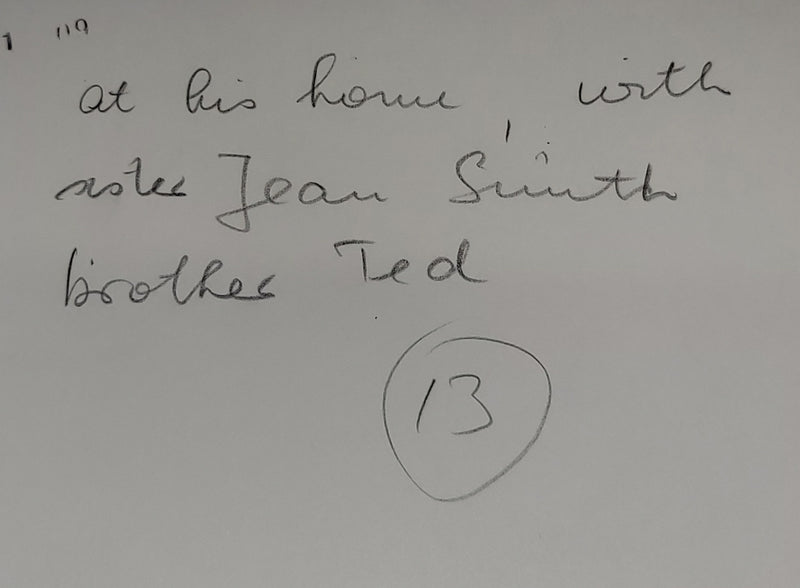 at his home, with
sister Jean Smith
brother Ted
13